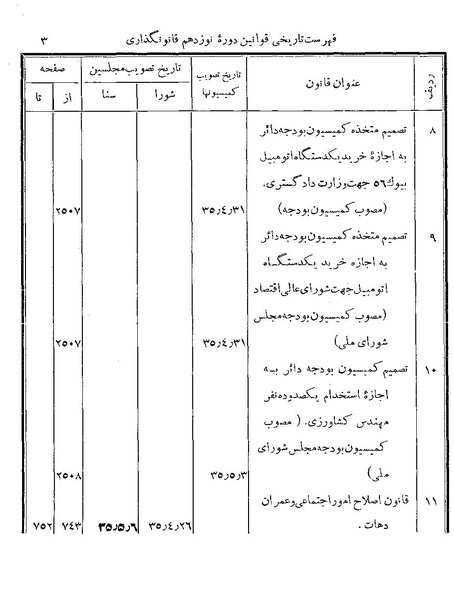 فهرست تاریخی قوانین دورهٔ نوزدهم قانونگذاری ۳
ردیف عنوان قانون تاریخ تصویب کمیسیونها تاریخ تصویب مجلسین صفحه
شورا سنا از تا
۸ تصمیم متخذه کمیسیون بودجه دائر
به اجازهٔ خرید یکدستگاه اتومبیل
بیوک ۵٦ جهت وزارت دادگستری.
(مصوب کمیسیون بودجه) ۳۵٫٤٫۳۱ ۲۵۰۷
۹ تصمیم متخذه کمیسیون بودجه دائر
به اجازه خرید یکدستگاه
اتومبیل جهت شورای عالی اقتصاد
(مصوب کمیسیون بودجه مجلس
شورای ملی) ۳۵٫٤٫۳۱ ۲۵۰۷
۱۰ تصمیم کمیسیون بودجه دائر به
اجازهٔ استخدام یکصد و ده نفر
مهندس کشاورزی. (مصوب
کمیسیون بودجه مجلس شورای
ملی) ۳۵٫۵٫۳ ۲۵۰۸
۱۱ قانون اصلاح امور اجتماعی و عمران
دهات. ۳۵٫٤٫۲٦ ۳۵٫۵٫٦ ۷٤۳ ۷۵۲